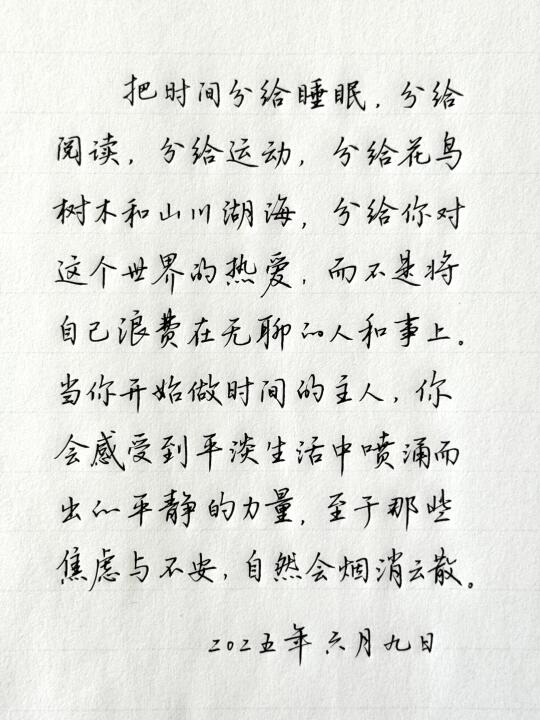 把时间分给睡眠，分给
阅读，分给运动，分给花鸟
树木和山川湖海，分给你对
这个世界的热爱，而不是将
自己浪费在无聊的人和事上。
当你开始做时间的主人，你
会感受到平淡生活中喷涌而
出的平静的力量，至于那些
焦虑与不安，自然会烟消云散。
2025五年六月九日